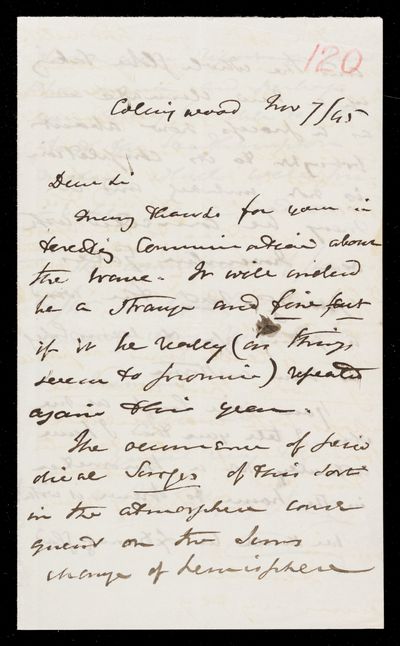 120
Collingwood Nov 7/45
Dear Sir
Many thanks for your in
teresting Communication about
the wave. It will indeed
be a strange and fine fact
if it be really (as things
seem to promise) repeated
again this year.
The occurrence of perio
dical Surges of this sort
in the atmosphere conse
quent on the Suns
change of hemisphere